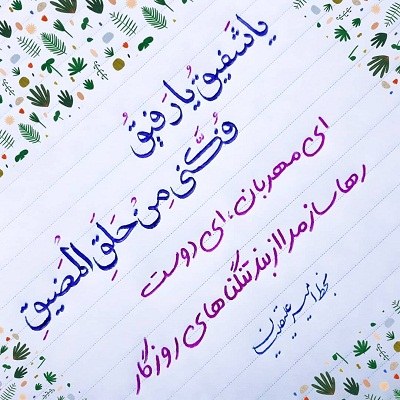 یا شَفیقُ یُا رَفیقُ
فُکَّنی مِنْ حَلَقِ المُضیقِ
ای مهربان، ای دوست
رها ساز مرا از بند تنگناهای روزگار
بخط امیر عتیقیان